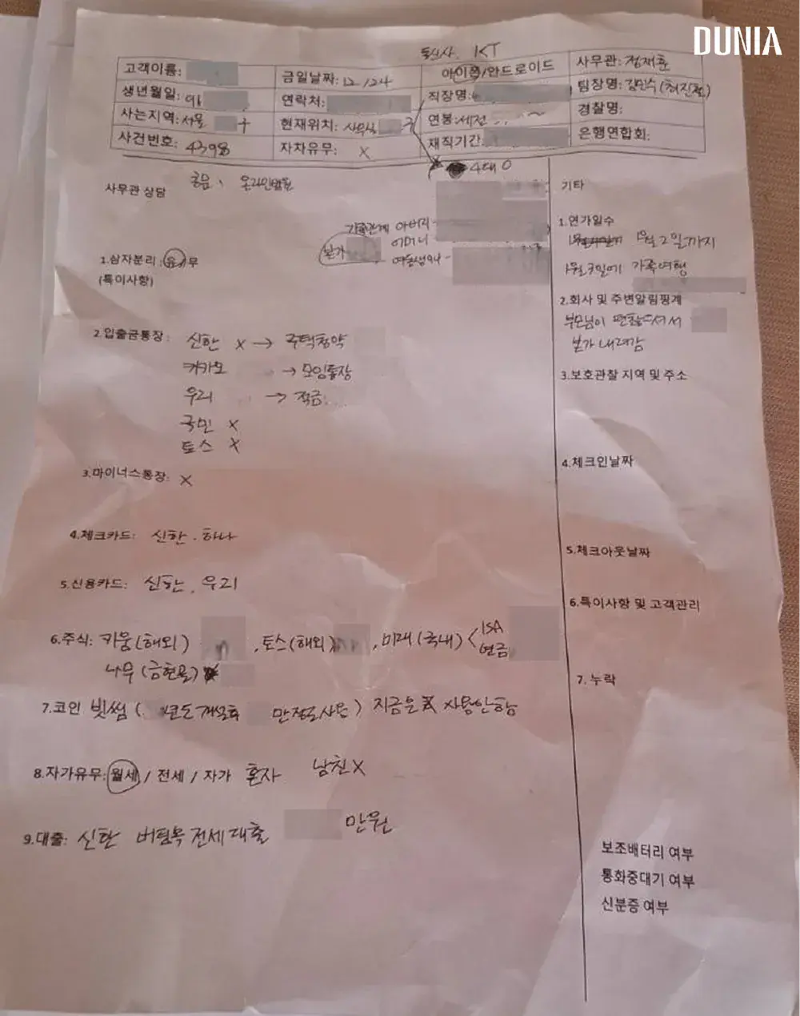 DUNIA
통신사 KT
고객이름:
금일날짜: 12/24
아이폰/안드로이드
사무관: 정재훈
생년월일: 91
연락처:
직장명:
팀장명: 김민수
사는지역: 서울
현재위치: 사무실
연봉: 세전
경찰명:
사건번호: 4398
자차유무: X
재직기간:
은행연합회:
4대 O
사무관 상담
온라인
기타
가족관계 아버지 -
어머니
본가
1.삼자분리: 유/무
(특이사항)
1.연가일수
1월 2일까지
가족여행
2.입출금통장:
신한 X → 주택청약
카카오 → 모임통장
우리 → 적금
국민 X
토스 X
2.회사 및 주변알림핑계
부모님이 편찮으셔서
본가 내려감
3.보호관찰 지역 및 주소
3.마이너스통장: X
4.체크인날짜
4.체크카드: 신한. 하나
5.체크아웃날짜
5.신용카드: 신한, 우리
6.특이사항 및 고객관리
6.주식: 키움(해외) , 토스(해외) , 미래(국내) < ISA
연금
나무
7.누락
7.코인 빗썸 ( 만정도사용) 지금은 X 사용안함
8.자가유무: 월세 / 전세 / 자가 혼자 남친X
9.대출: 신한 버팀목 전세대출 만원
보조배터리 여부
통화중대기 여부
신분증 여부